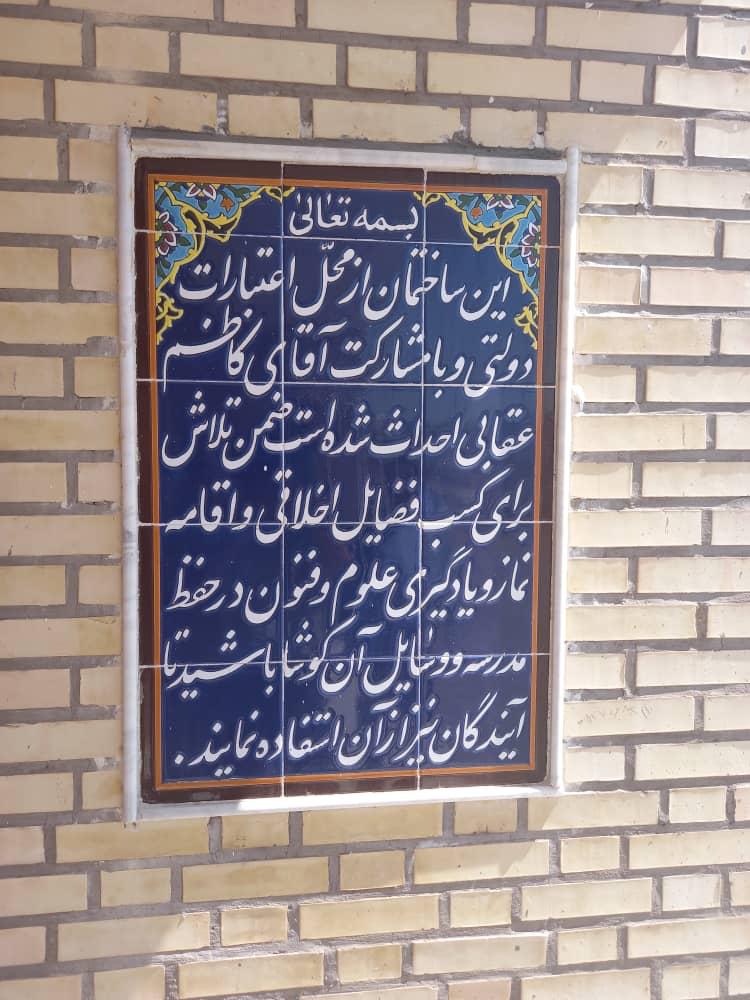 بسمه تعالیٰ
این ساختمان از محلّ اعتبارات
دولتی و با مشارکت آقای کاظم
عقابی احداث شده است ضمن تلاش
برای کسب فضایل اخلاقی و اقامه
نماز و یادگیری علوم و فنون در حفظ
مدرسه و وسایل آن کوشا باشید تا
آیندگان نیز از آن استفاده نمایند.